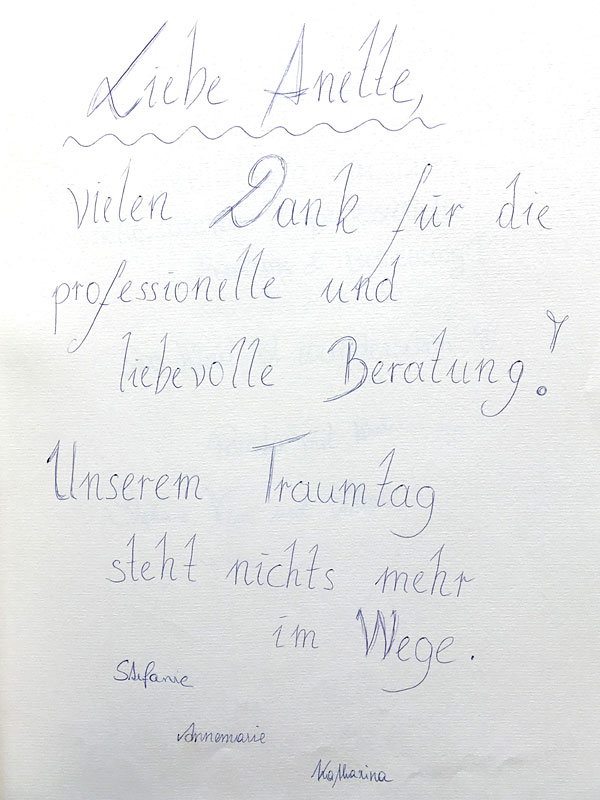 Liebe Anette,
vielen Dank für die
professionelle und
liebevolle Beratung!
Unserem Traumtag
steht nichts mehr
im Wege.
Stefanie
Annemarie
Katharina